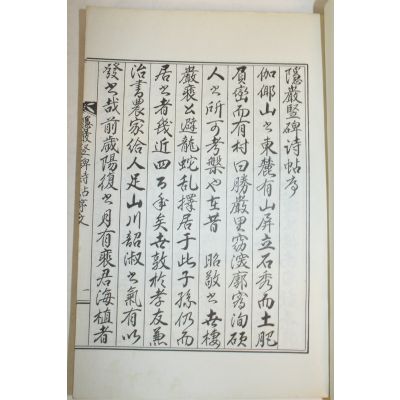 隱嚴竪碑詩帖序
伽倻山之東麓有山屏立石秀而土肥
負密而有村曰勝嚴里窈深廓寬洵碩
人之所可考槃也在昔 昭敬之世棲
嚴裵公避龍蛇乱擇居于此子孫仍而
居之者幾近四百年矣世敦於孝友兼
治書農家給人足山川韶淑之氣有以
發之哉前歲陽復之月有裵君海植者
隱嚴竪碑詩帖序文
一